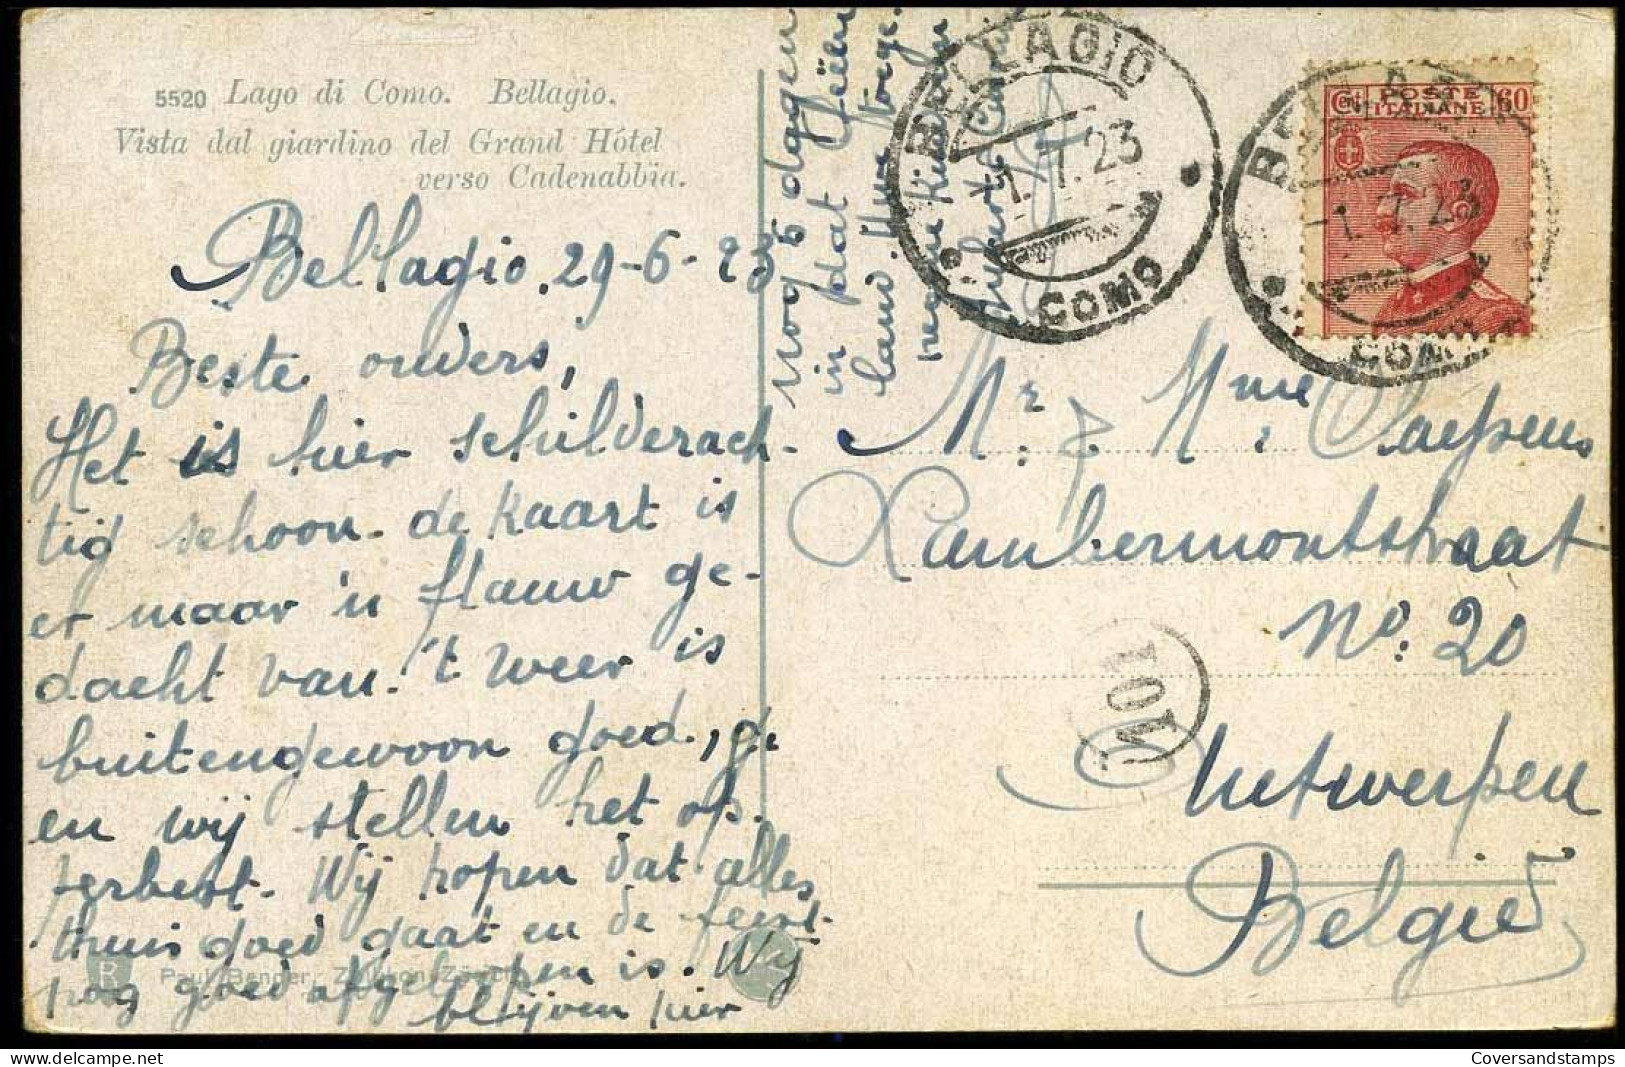 5520 Lago di Como. Bellagio.
Vista dal giardino del Grand Hôtel
verso Cadenabbia.
Bellagio. 29-6-23
Beste ouders,
Het is hier schilderach-
tig schoon. de kaart is
er maar 'n flauw ge-
dacht van. 't weer is
buitengewoon goed,
en wij stellen het op.
perbest. Wij hopen dat alles
thuis goed gaat en de feest
nog goed afgeloopen is. Wij
blijven hier
nog 5 dagen
in
land. Uwe
BELLAGIO
1.7.23
COMO
BELLAGIO
1.7.23
COMO
POSTE
ITALIANE
Cent 60
Mr. & Mme. Claepens
Lambermontstraat
No. 20
Antwerpen
België
10V
R Paul Bender, Zollikon-Zürich
Coversandstamps